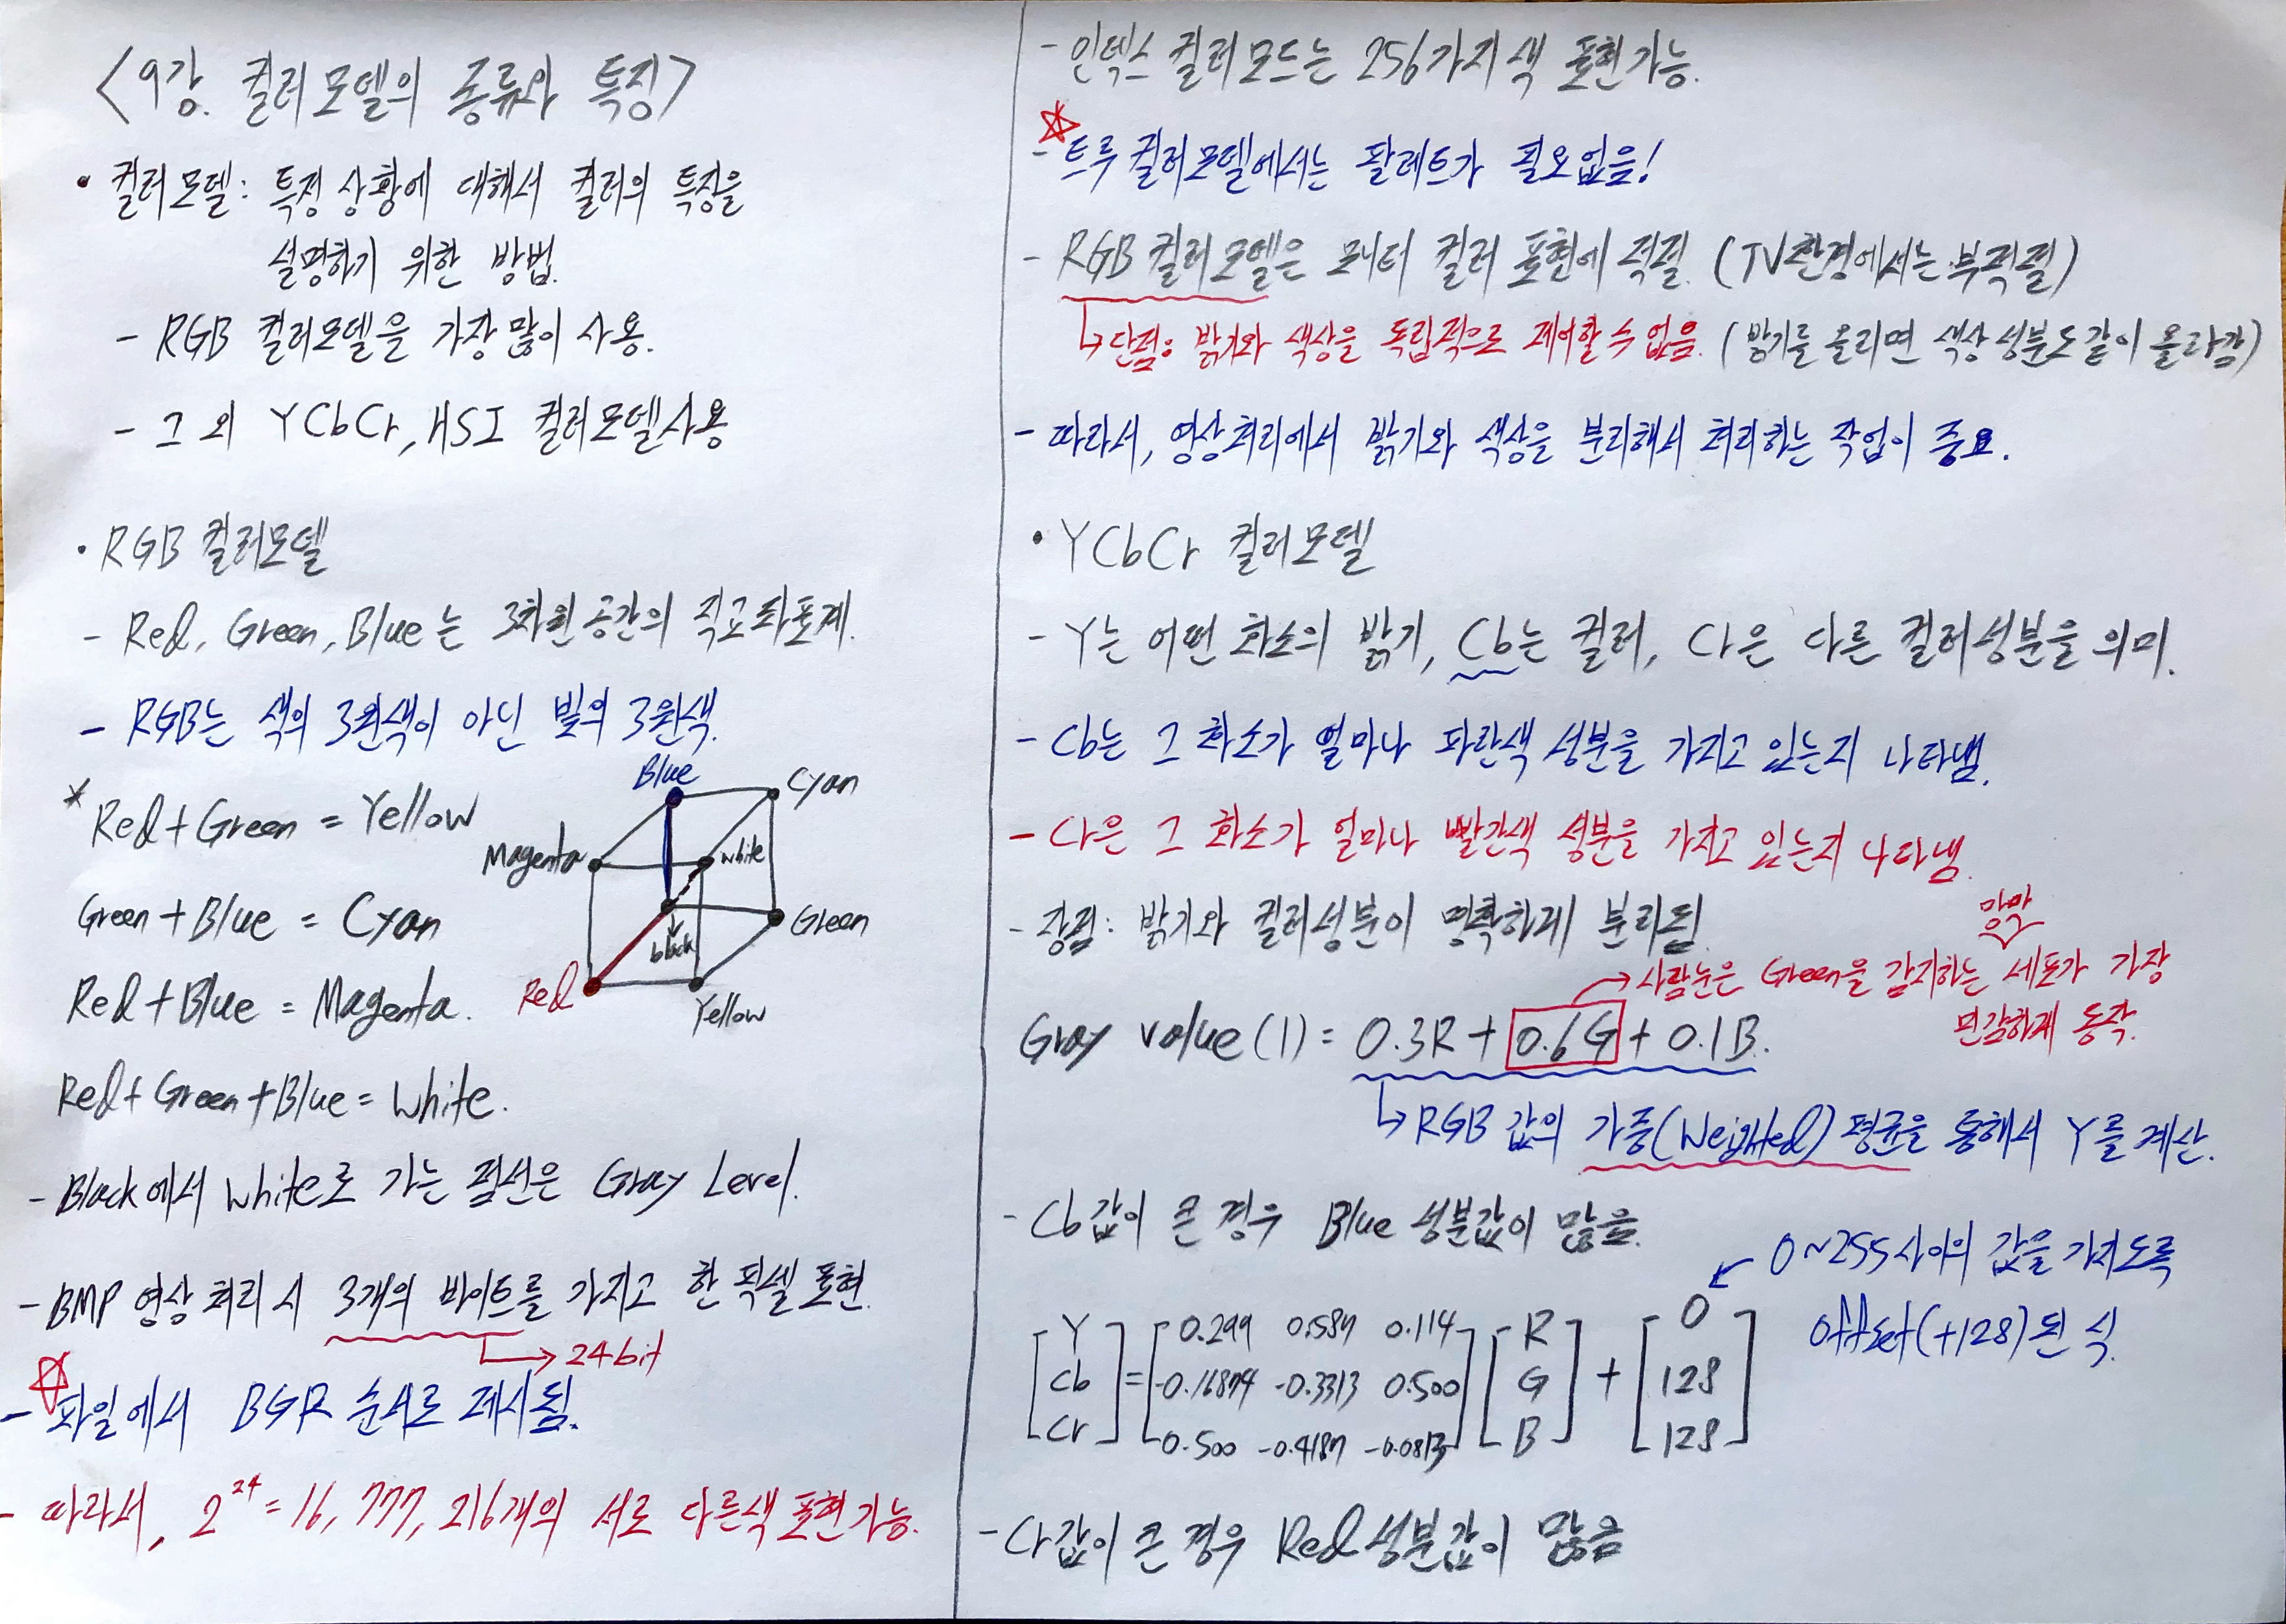 <9강. 컬러모델의 종류와 특징>
• 컬러모델: 특정 상황에 대해서 컬러의 특징을
설명하기 위한 방법.
- RGB 컬러모델을 가장 많이 사용.
- 그 외 YCbCr, HSI 컬러모델 사용
• RGB 컬러모델
- Red, Green, Blue는 3차원 공간의 직교좌표계.
- RGB는 색의 3원색이 아닌 빛의 3원색.
* Red+Green = Yellow
Green+Blue = Cyan
Red+Blue = Magenta.
Red+Green+Blue = White.
Blue
Cyan
Magenta
white
Green
black
Red
Yellow
- Black에서 white로 가는 점선은 Gray Level.
- BMP 영상 처리 시 3개의 바이트를 가지고 한 픽셀 표현.
↳→ 24bit
☆
- 파일에서 BGR 순서로 제시됨.
- 따라서, 2²⁴ = 16,777,216개의 서로 다른색 표현가능.
- 인덱스 컬러모드는 256가지 색 표현가능.
☆
- 트루 컬러모델에서는 팔레트가 필요없음!
- RGB 컬러모델은 모니터 컬러 표현에 적절. (TV환경에서는 부적절)
↳ 단점: 밝기와 색상을 독립적으로 제어할 수 없음. (밝기를 올리면 색상성분도 같이 올라감)
- 따라서, 영상처리에서 밝기와 색상을 분리해서 처리하는 작업이 중요.
• YCbCr 컬러모델
- Y는 어떤 화소의 밝기, Cb는 컬러, Cr은 다른 컬러성분을 의미.
- Cb는 그 화소가 얼마나 파란색 성분을 가지고 있는지 나타냄.
- Cr은 그 화소가 얼마나 빨간색 성분을 가지고 있는지 나타냄.
- 장점: 밝기와 컬러성분이 명확하게 분리됨.
망막
→ 사람눈은 Green을 감지하는 세포가 가장
민감하게 동작.
Gray value(1) = 0.3R + 0.6G + 0.1B.
↳ RGB 값의 가중(Weighted) 평균을 통해서 Y를 계산.
- Cb값이 큰 경우 Blue 성분값이 많음.
0~255사이의 값을 가지도록
offset(+128)된 식.
[Y] = [0.299 0.587 0.114] [R] + [0]
[Cb] [-0.16874 -0.3313 0.500] [G] [128]
[Cr] [0.500 -0.4187 -0.0813] [B] [128]
- Cr값이 큰 경우 Red 성분값이 많음